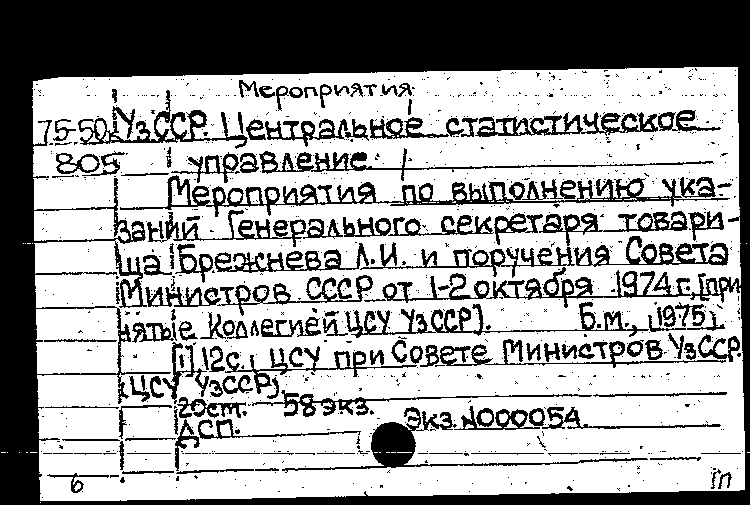 Мероприятия
75-50 УзССР. Центральное статистическое
805 управление.
Мероприятия по выполнению ука-
заний Генерального секретаря товари-
ща Брежнева Л.И. и поручения Совета
Министров СССР от 1-2 октября 1974 г., [при
нятые Коллегией ЦСУ УзССР]. Б.м., [1975].
[1], 12с. ЦСУ при Совете Министров УзССР.
(ЦСУ УзССР).
20см. 58 экз. Экз. №000054.
ДСП.
6 гп